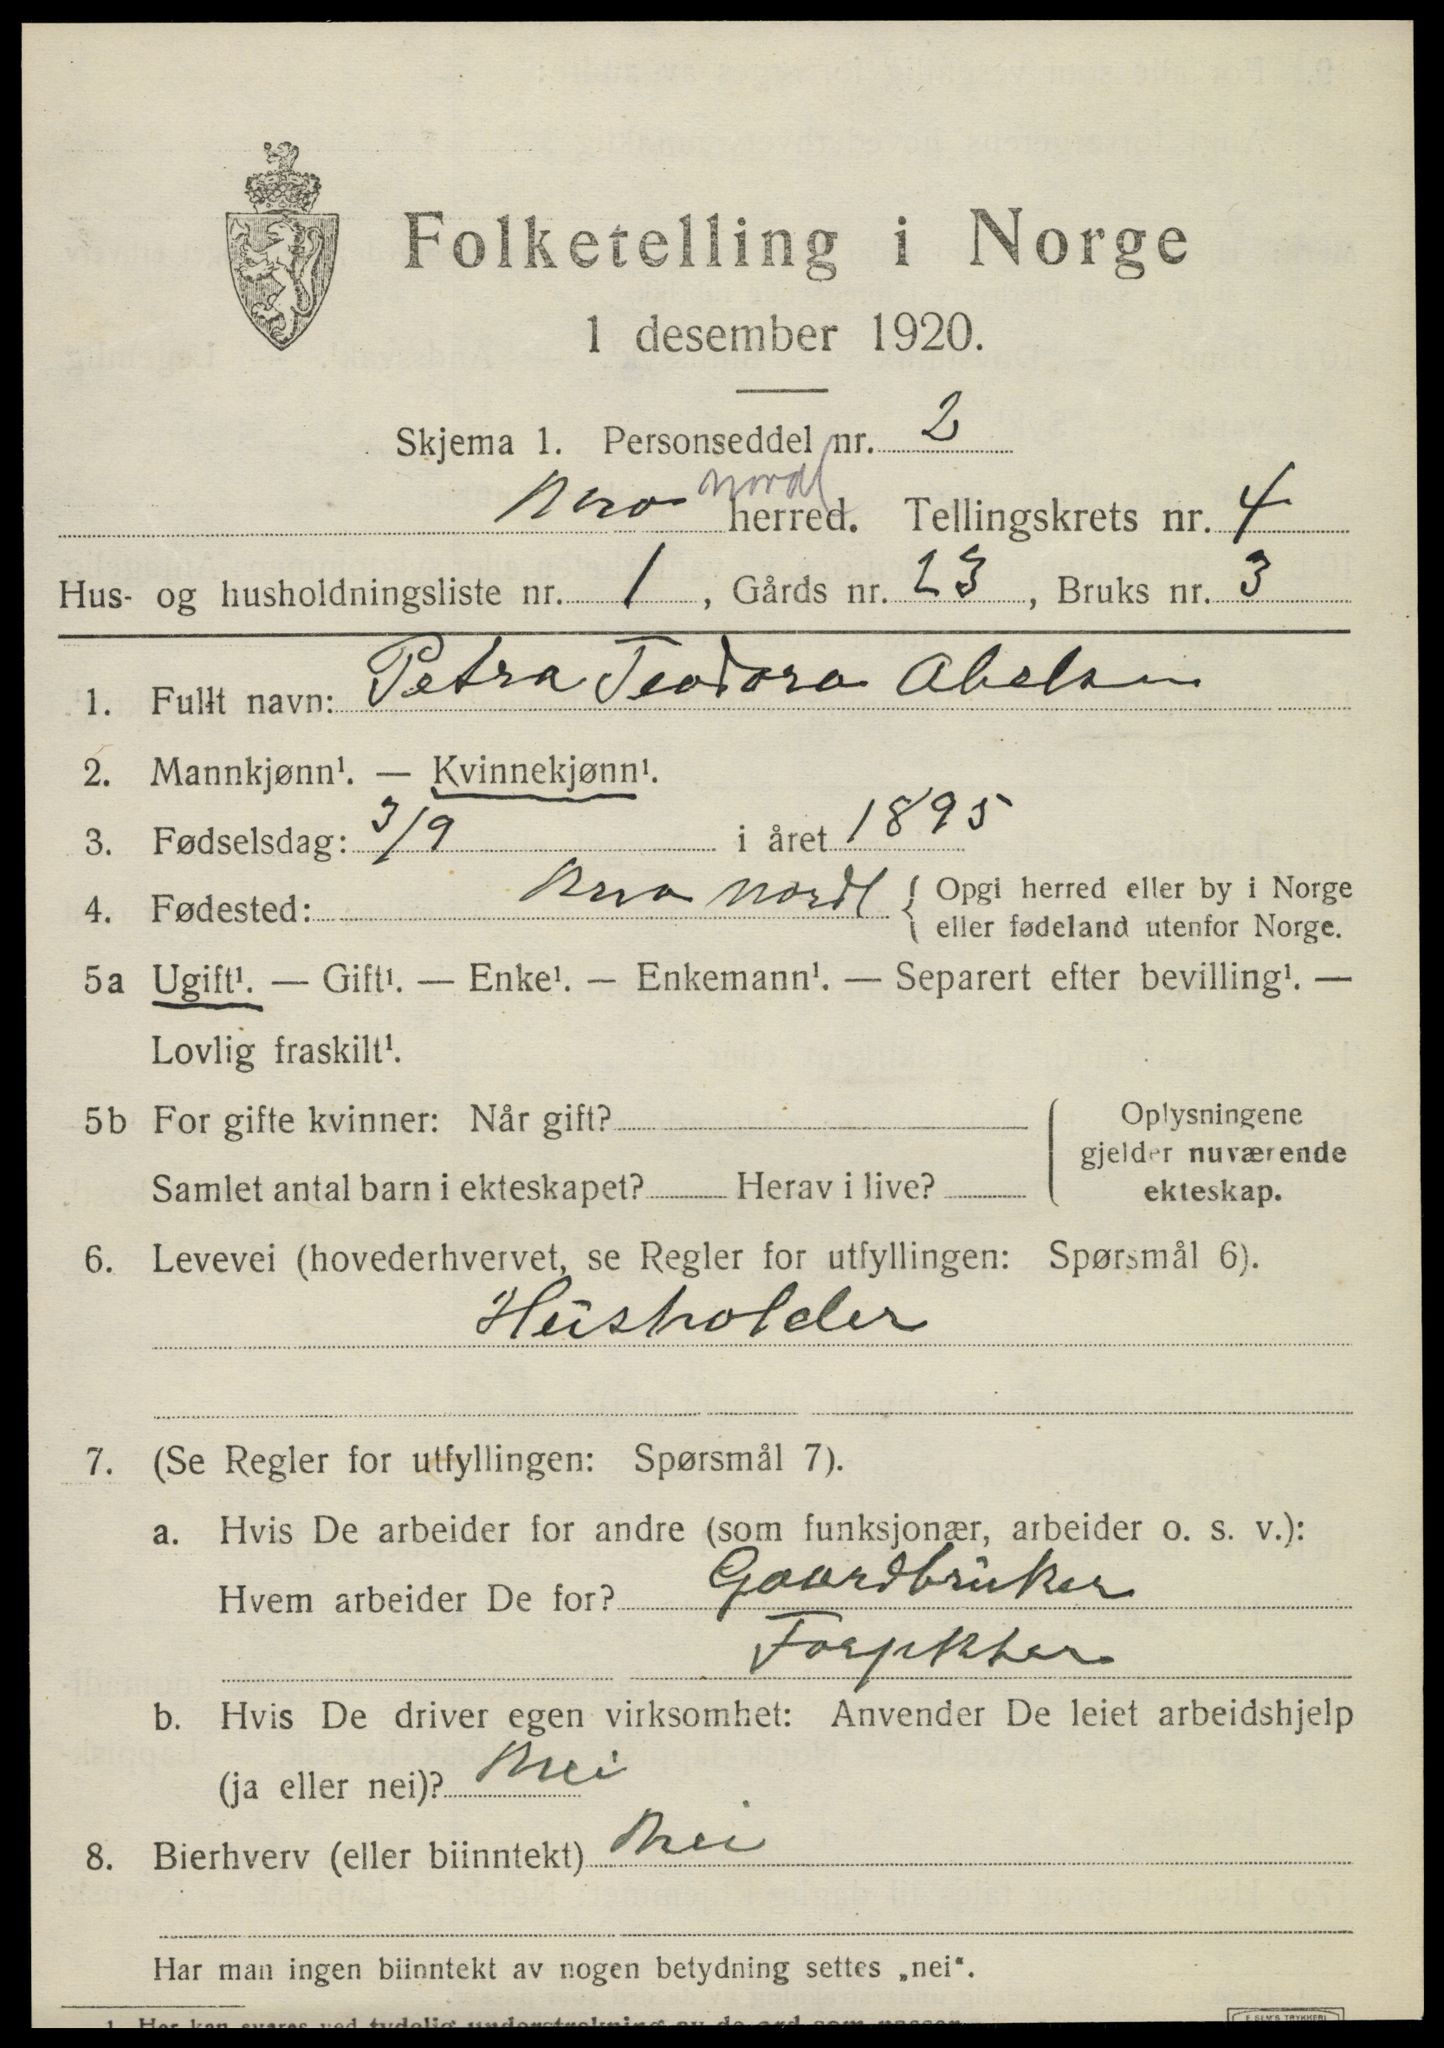 Folketelling i Norge
1 desember 1920.
Skjema 1. Personseddel nr. 2
Nordl
herred. Tellingskrets nr. 4
Hus- og husholdningsliste nr. 1, Gårds nr. 23, Bruks nr. 3
1. Fullt navn: Petra Teodora Abelsen
2. Mannkjønn¹. — Kvinnekjønn¹.
3. Fødselsdag: 3/9 i året 1895
4. Fødested: Nordl { Opgi herred eller by i Norge
eller fødeland utenfor Norge.
5a Ugift¹. — Gift¹. — Enke¹. — Enkemann¹. — Separert efter bevilling¹. —
Lovlig fraskilt¹.
5b For gifte kvinner: Når gift?
Samlet antal barn i ekteskapet? Herav i live?
Oplysningene
gjelder nuværende
ekteskap.
6. Levevei (hovederhvervet, se Regler for utfyllingen: Spørsmål 6).
Husholder
7. (Se Regler for utfyllingen: Spørsmål 7).
a. Hvis De arbeider for andre (som funksjonær, arbeider o. s. v.):
Hvem arbeider De for? Gaardbruker
b. Hvis De driver egen virksomhet: Anvender De leiet arbeidshjelp
(ja eller nei)? Nei
8. Bierhverv (eller biinntekt) Nei
Har man ingen biinntekt av nogen betydning settes „nei“.